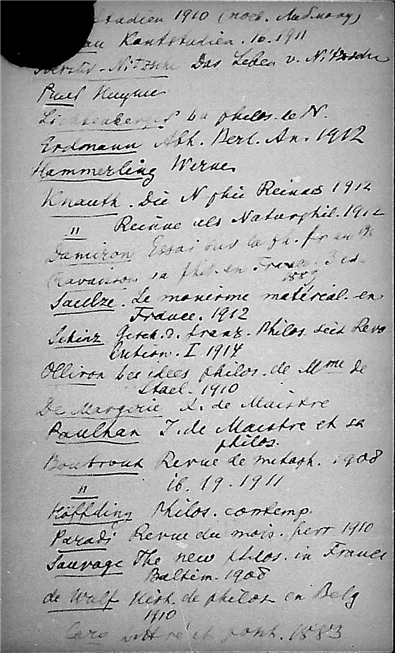 studien 1910 (noch.
Kantstudien. 16. 1911
Das Leben v. Nietzsche
Paul
Lichtenberger La philos. de N.
Erdmann Abh. Berl. An. 1912
Hammerling Werner
Knauth. Die N phie Reinas 1912
" Reinue als Naturphil. 1912
Damiron Essai sur la ph. fr au
Ravaisson La phil. en France. 3 ed
1889
Saulze. Le monisme matérial. en
France. 1912
Schinz Gesch. d. franz. Philos seit Revo
lution. I 1914
Ollion Les idees philos. de Mme de
Stael. 1910
De Margerie J. de Maistre
Paulhan J. de Maistre et sa
philos.
Boutroux Revue de metaph. 1908
" ib. 19. 1911
Höffding Philos. contemp.
Parodi Revue du mois. 1910
Sauvage The new philos. in France
Baltim. 1908
de Wulf Hist. de philos en Belg
1910
Caro Littré et posit. 1883